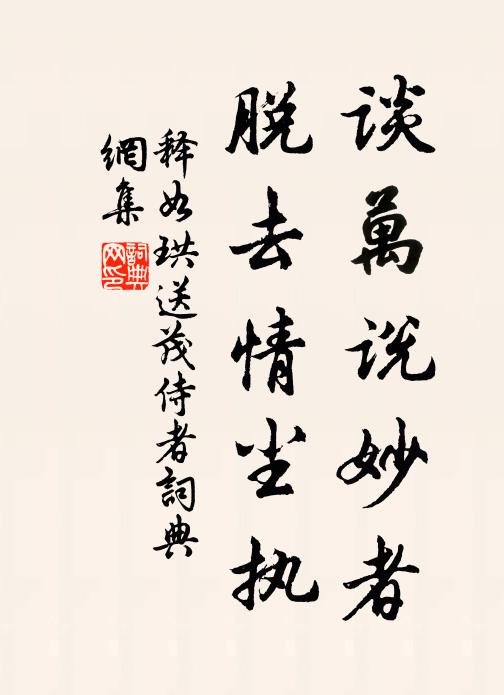 談萬说妙者
脱去情尘执
释如珙送茂侍者詞典
網集
詞典
网印